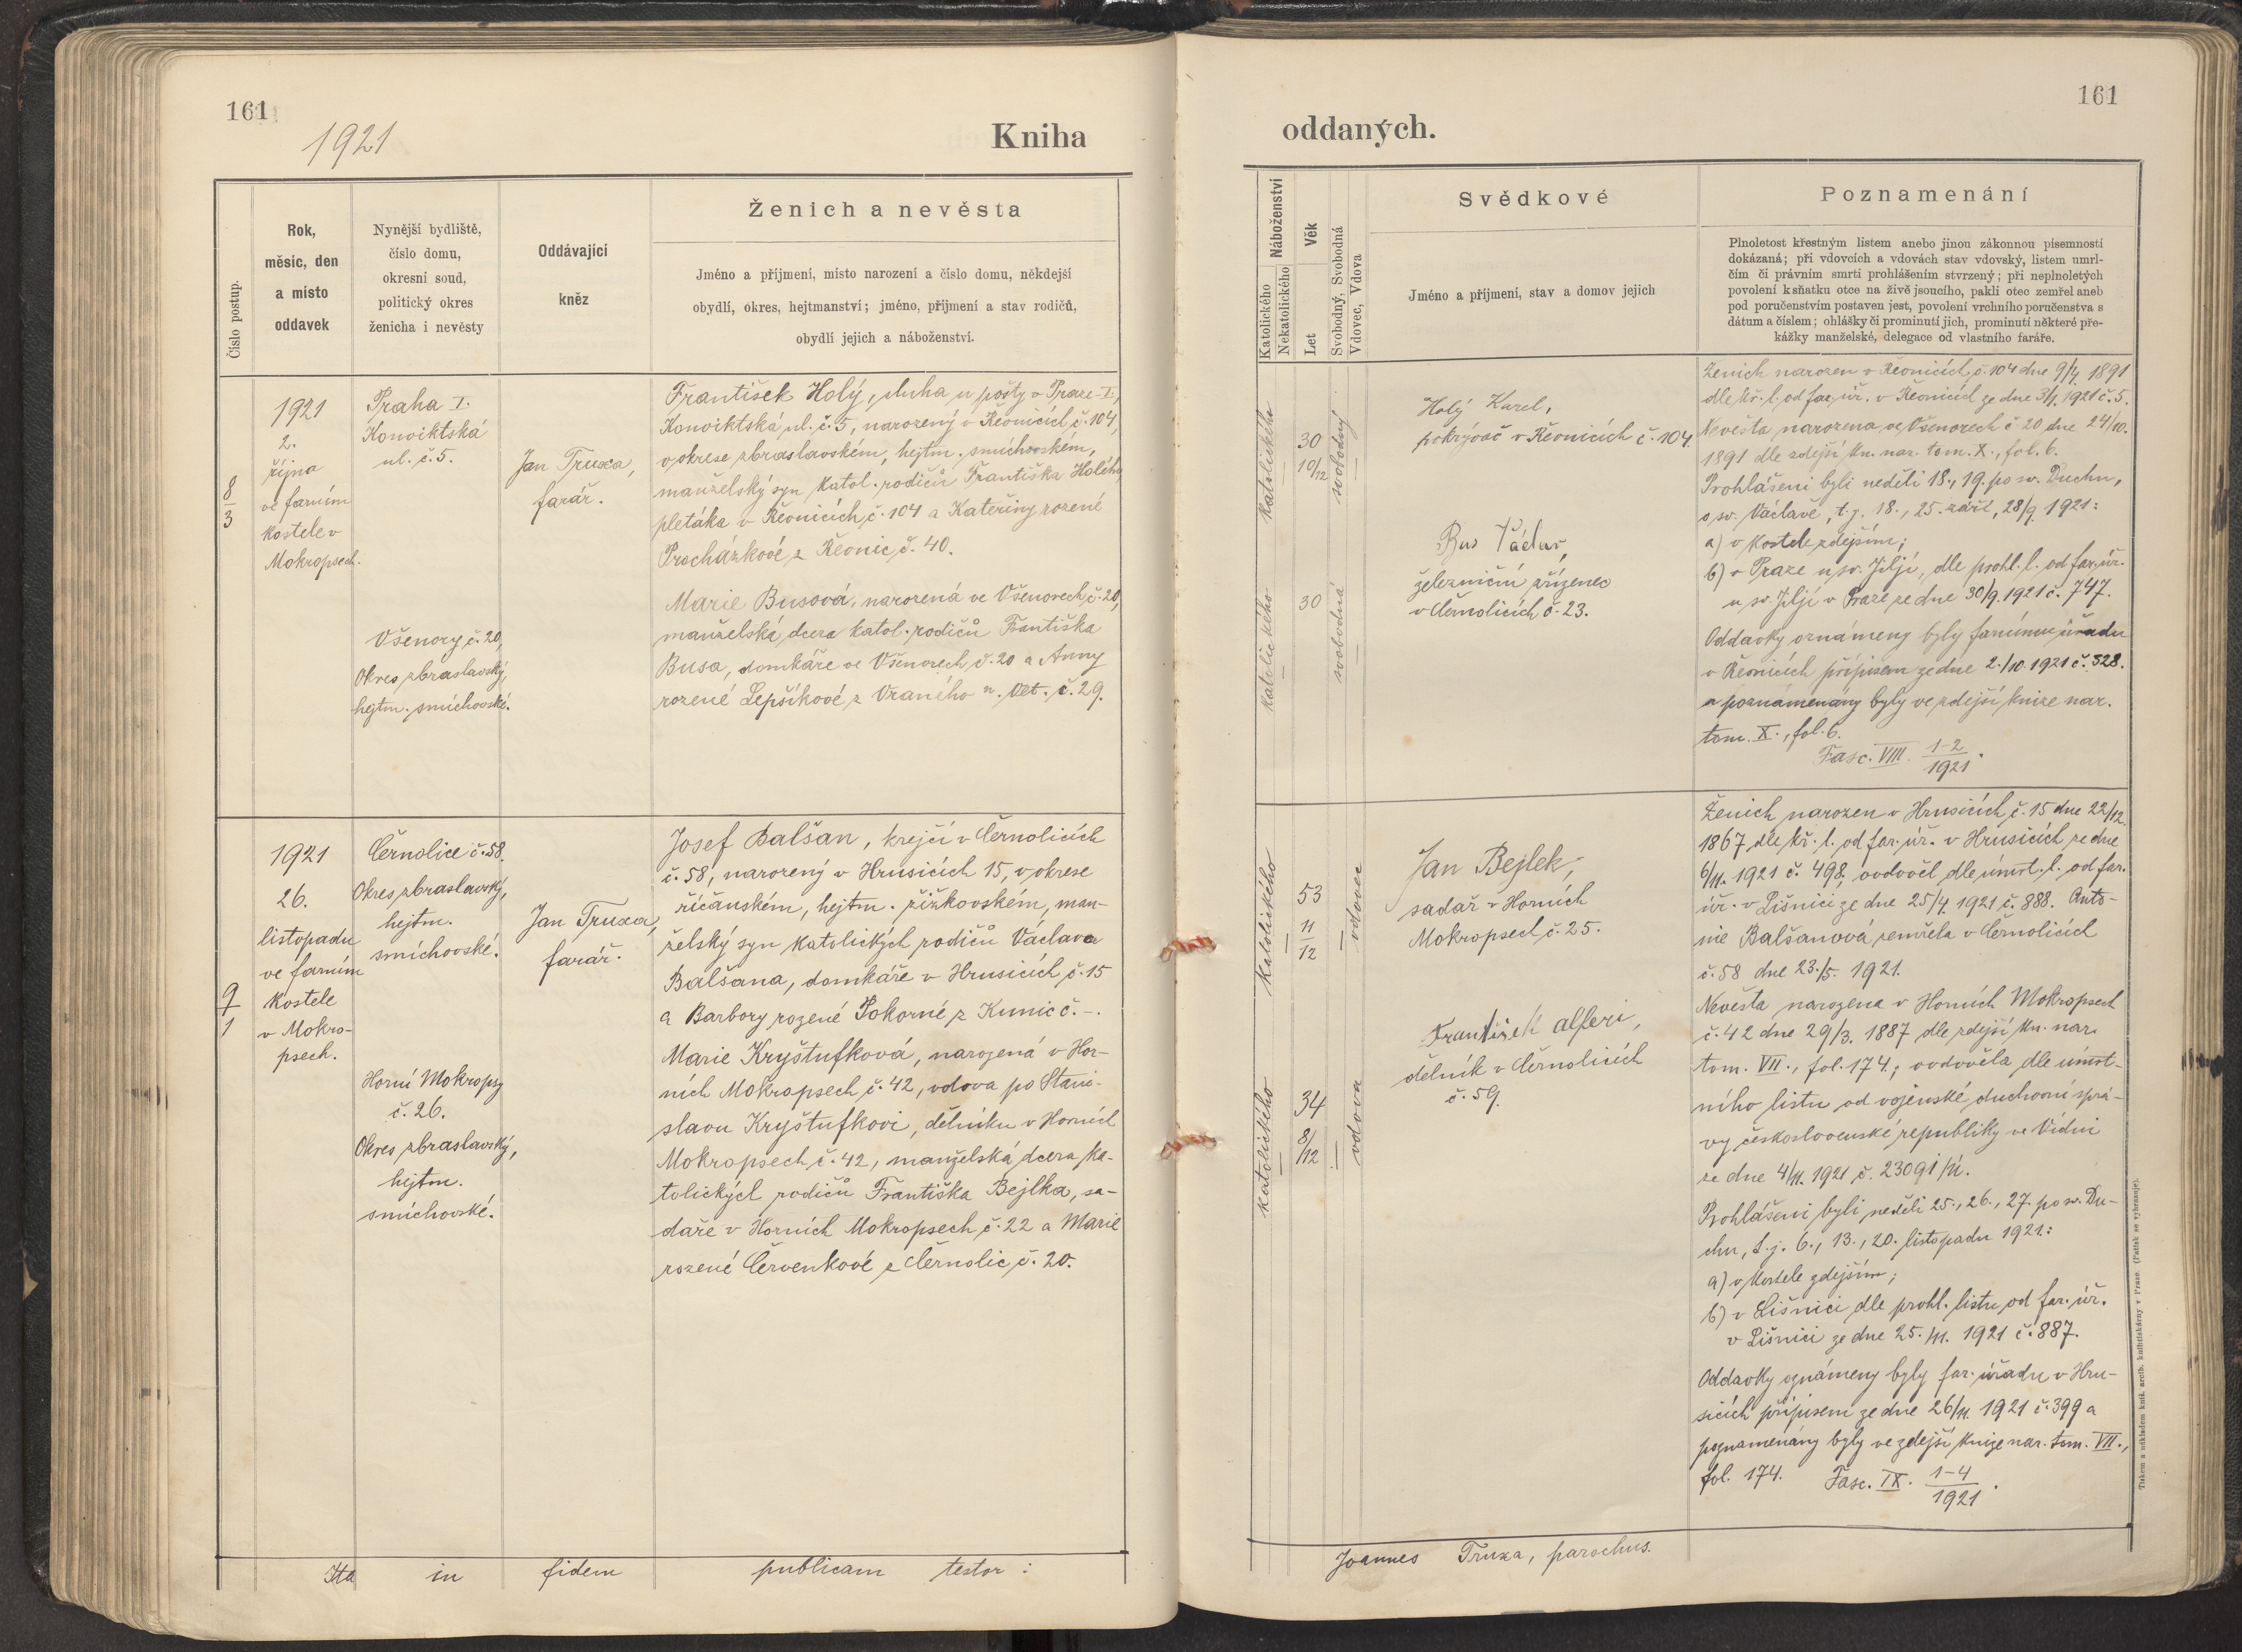 161
1921
Kniha
Číslo postup.
Rok,
měsíc, den
a místo
oddavek
Nynější bydliště,
číslo domu,
okresní soud,
politický okres
ženicha i nevěsty
Oddávající
kněz
Ženich a nevěsta
Jméno a příjmení, místo narození a číslo domu, někdejší
obydlí, okres, hejtmanství; jméno, příjmení a stav rodičů,
obydlí jejich a náboženství.
8
3
1921
2.
října
ve farním
kostele v
Mokropsech.
Praha I.
Konviktská
ul. č. 5.
Všenory č. 20,
Okres zbraslavský,
hejtm. smíchovské.
Jan Truxa,
farář.
František Holý, sluha u pošty v Praze-I,
Konviktská ul. č. 5, narozený v Řevnicích č. 104,
v okrese zbraslavském, hejtm. smíchovském,
manželský syn katol. rodičů Františka Holého,
pletáka v Řevnicích č. 104 a Kateřiny rozené
Procházkové z Řevnic č. 40.
Marie Busová, narozená ve Všenorech č. 20,
manželská dcera katol. rodičů Františka
Busa, domkáře ve Všenorech č. 20 a Anny
rozené Lepšíkové z Vraného n. Vlt. č. 29.
9
1
1921
26.
listopadu
ve farním
kostele
v Mokro-
psech.
Černolice č. 58.
Okres zbraslavský,
hejtm.
smíchovské.
Horní Mokropsy
č. 26.
Okres zbraslavský,
hejtm.
smíchovské.
Jan Truxa,
farář.
Josef Balšan, krejčí v Černolicích
č. 58, narozený v Hrusicích 15, v okrese
říčanském, hejtm. žižkovském, man-
želský syn katolických rodičů Václava
Balšana, domkáře v Hrusicích č. 15
a Barbory rozené Pokorné z Kunic č. -.
Marie Kryštufková, narozená v Hor-
ních Mokropsech č. 42, vdova po Stani-
slavu Kryštufkovi, dělníku v Horních
Mokropsech č. 42, manželská dcera ka-
tolických rodičů Františka Bejlka, sa-
daře v Horních Mokropsech č. 22 a Marie
rozené Červenkové z Černolic č. 20.
Ita in fidem publicam testor:
161
oddaných.
Náboženství
Katolického
Nekatolického
Věk
Let
Svobodný, Svobodná
Vdovec, Vdova
Svědkové
Jméno a příjmení, stav a domov jejich
Poznamenání
Plnoletost křestným listem anebo jinou zákonnou písemností
dokázaná; při vdovcích a vdovách stav vdovský, listem umrl-
čím či právním smrti prohlášením stvrzený; při neplnoletých
povolení k sňatku otce na živě jsoucího, pakli otec zemřel aneb
pod poručenstvím postaven jest, povolení vrchního poručenstva s
dátum a číslem; ohlášky či prominutí jich, prominutí některé pře-
kážky manželské, delegace od vlastního faráře.
katolického
30
10/12
svobodný
Holý Karel,
pokrývač v Řevnicích č. 104
katolického
30
svobodná
Bus Václav,
železniční zřízenec
v Černolicích č. 23.
Ženich narozen v Řevnicích č. 104 dne 9/4. 1891
dle kř. l. od far. úř. v Řevnicích ze dne 3/1. 1921 č. 5.
Nevěsta narozena ve Všenorech č. 20 dne 24/10.
1891 dle zdejší kn. nar. tom. X., fol. 6.
Prohlášeni byli neděli 18., 19. po sv. Duchu,
o sv. Václavě, t. j. 18., 25. září, 28/9. 1921:
a) v kostele zdejším;
b) v Praze u sv. Jiljí, dle prohl. l. od far. úř.
u sv. Jiljí v Praze ze dne 30/9. 1921 č. 747.
Oddavky oznámeny byly farnímu úřadu
v Řevnicích přípisem ze dne 2./10. 1921 č. 328.
a poznamenány byly ve zdejší knize nar.
tom. X., fol. 6.
Fasc. VIII. 1-2
1921.
katolického
53
11
12
vdovec
Jan Bejlek,
sadař v Horních
Mokropsech č. 25.
katolického
34
8/12
vdova
František Alferi,
dělník v Černolicích
č. 59.
Ženich narozen v Hrusicích č. 15 dne 22/12.
1867 dle kř. l. od far. úř. v Hrusicích ze dne
6/11. 1921 č. 498, ovdověl dle úmrt. l. od far.
úř. v Lišnici ze dne 25/4. 1921 č. 888. Anto-
nie Balšanová zemřela v Černolicích
č. 58 dne 23./5. 1921.
Nevěsta narozena v Horních Mokropsech
č. 42 dne 29/3. 1887 dle zdejší kn. nar.
tom. VII., fol. 174.; ovdověla dle úmrt-
ního listu od vojenské duchovní sprá-
vy československé republiky ve Vídni
ze dne 4/11. 1921 č. 23091/
Prohlášeni byli neděli 25., 26., 27. po sv. Du-
chu, t. j. 6., 13., 20. listopadu 1921:
a) v kostele zdejším;
b) v Lišnici dle prohl. listu od far. úř.
v Lišnici ze dne 25./11. 1921 č. 887.
Oddavky oznámeny byly far. úřadu v Hru-
sicích přípisem ze dne 26/11. 1921 č. 399 a
poznamenány byly ve zdejší knize nar. tom. VII.,
fol. 174. Fasc. IX. 1-4
1921.
Joannes Truxa, parochus.
Tiskem a nákladem kníž. arcib. knihtiskárny v Praze. (Patisk se vyhrazuje).